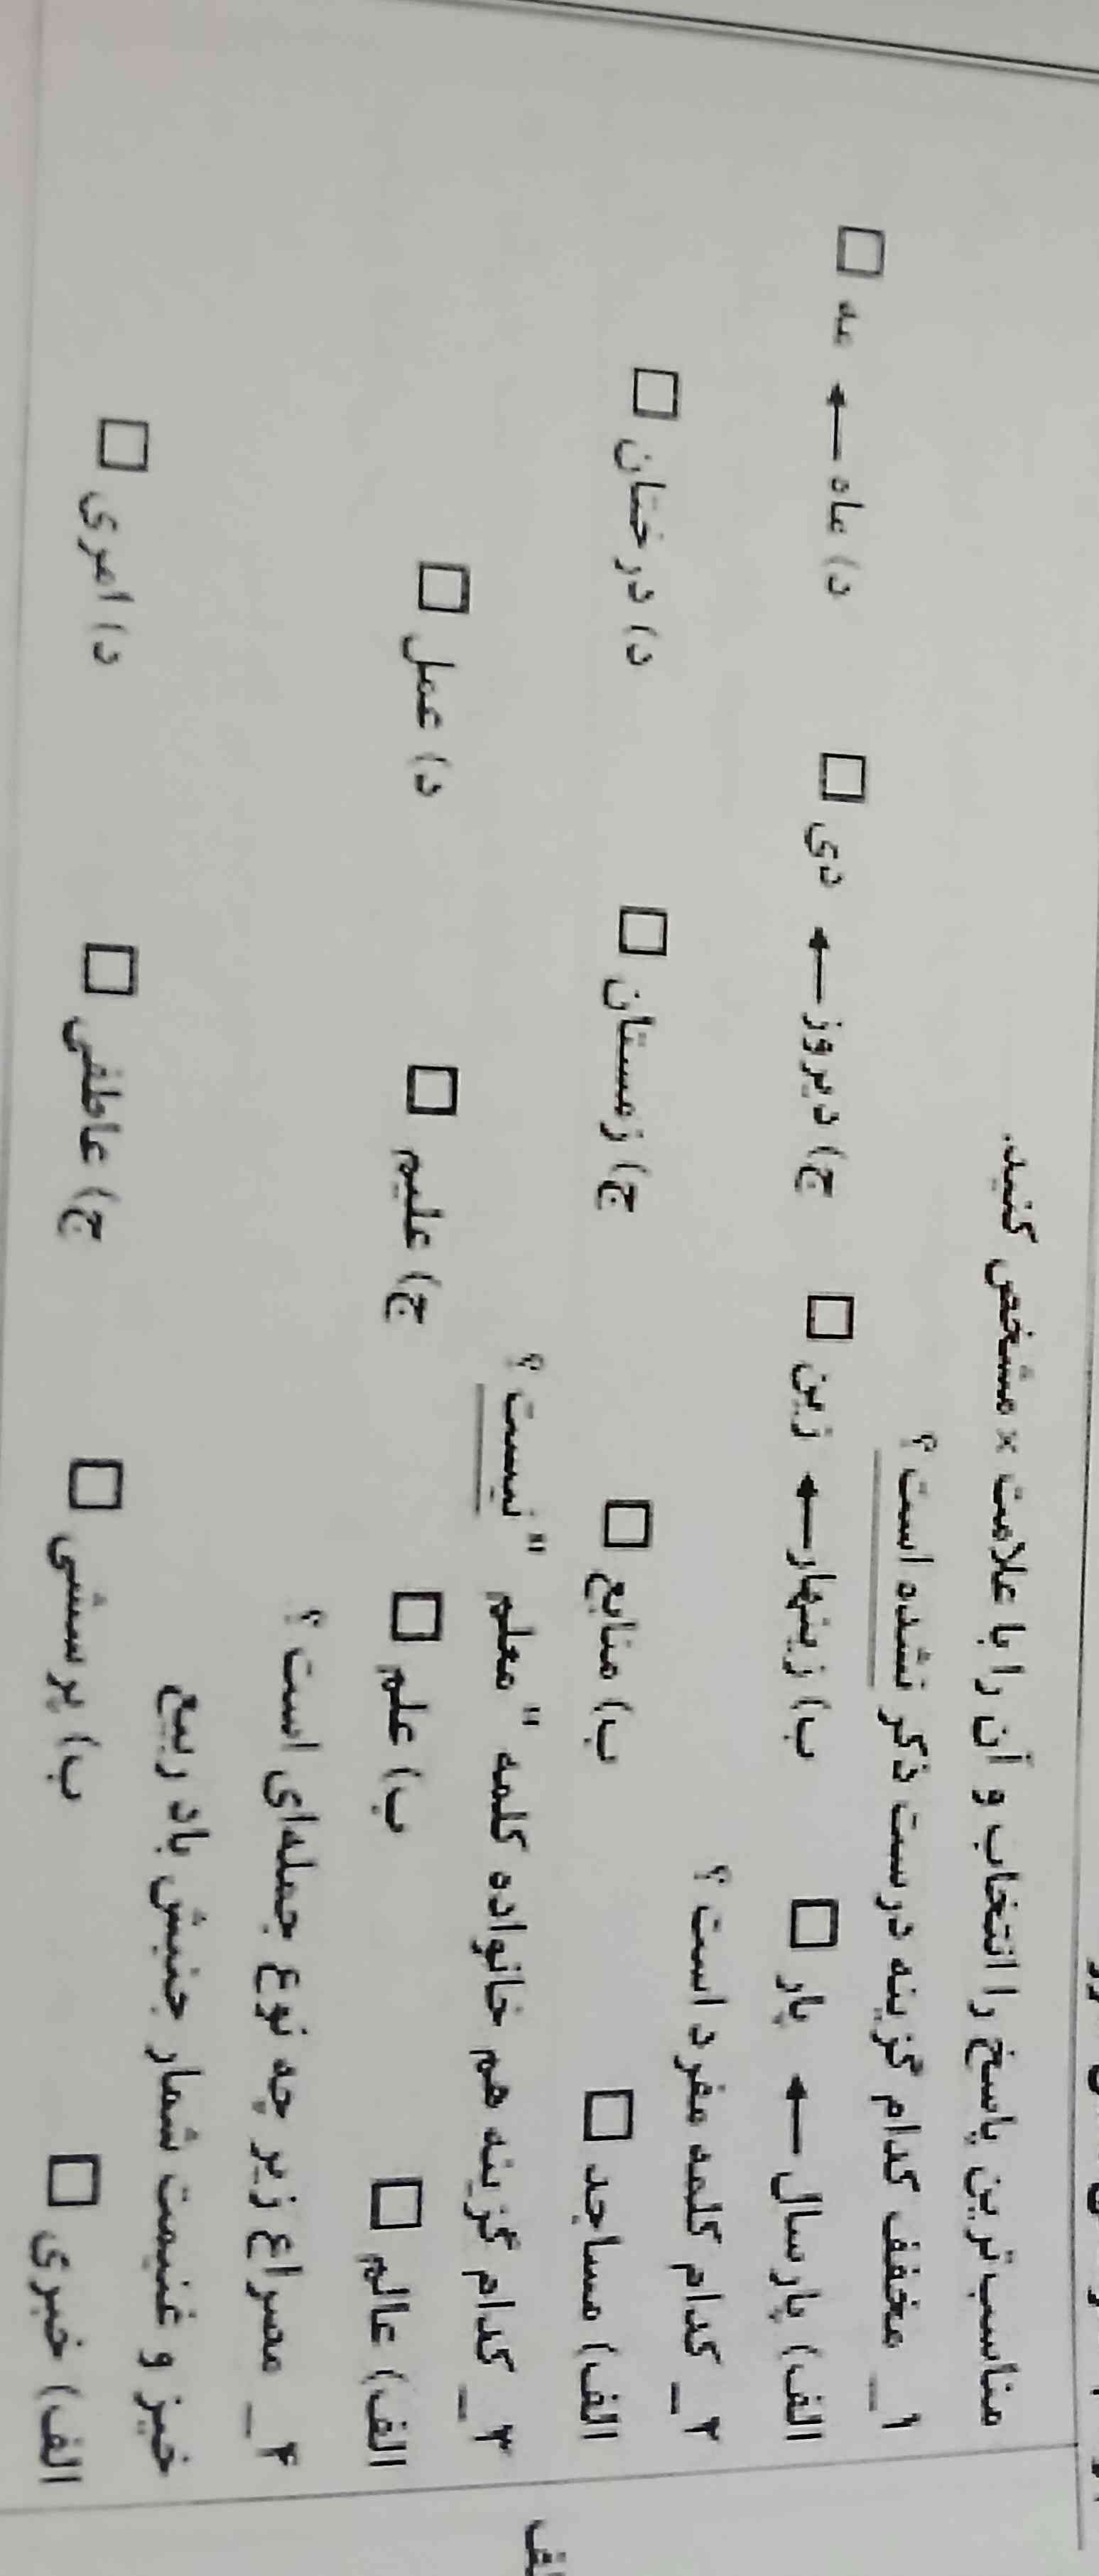 مناسب‌ترین پاسخ را انتخاب و آن را با علامت × مشخص کنید.
۱_ مخفف کدام گزینه درست ذکر نشده است؟
الف) پارسال ← پار □ ب) زینهار ← زین □ ج) دیروز ← دی □ د) ماه ← مه □
۲_ کدام کلمه مفرد است؟
الف) مساجد □ ب) منابع □ ج) زمستان □ د) درختان □
۳_ کدام گزینه هم خانواده کلمه "معلم" نیست؟
الف) عالم □ ب) علم □ ج) علیم □ د) عمل □
۴_ مصراع زیر چه نوع جمله‌ای است؟
خیز و غنیمت شمار جنبش باد ربیع
الف) خبری □ ب) پرسشی □ ج) عاطفی □ د) امری □